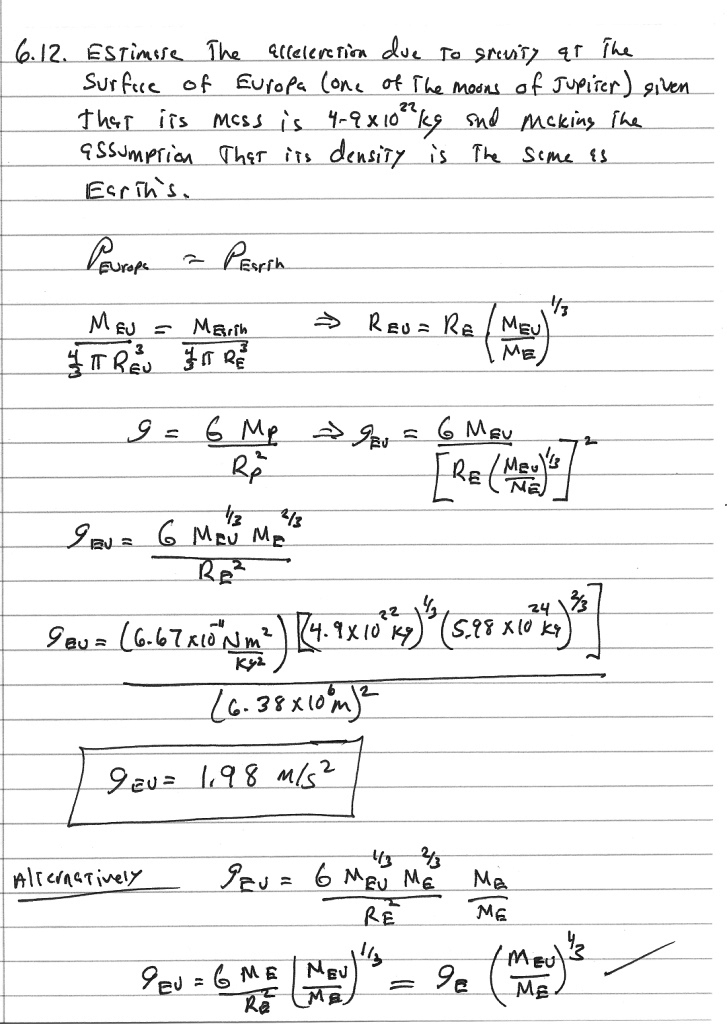 6.12. Estimate the acceleration due to gravity at the
surface of Europa (one of the moons of Jupiter) given
that its mass is 4.9 x 10²² kg and making the
assumption that its density is the same as
Earth's.
ρ_Europa = ρ_Earth
M_EU / (4/3 π R_EU³) = M_Earth / (4/3 π R_E³) ⇒ R_EU = R_E (M_EU / M_E)^1/3
g = G M_P / R_P² ⇒ g_EU = G M_EU / [R_E (M_EU / M_E)^1/3]²
g_EU = G M_EU^1/3 M_E^2/3 / R_E²
g_EU = (6.67 x 10⁻¹¹ N m² / kg²) [(4.9 x 10²² kg)^1/3 (5.98 x 10²⁴ kg)^2/3] / (6.38 x 10⁶ m)²
g_EU = 1.98 m/s²
Alternatively g_EU = G M_EU^1/3 M_E^2/3 / R_E² M_E / M_E
g_EU = G M_E / R_E² (M_EU / M_E)^1/3 = g_E (M_EU / M_E)^1/3 ✓